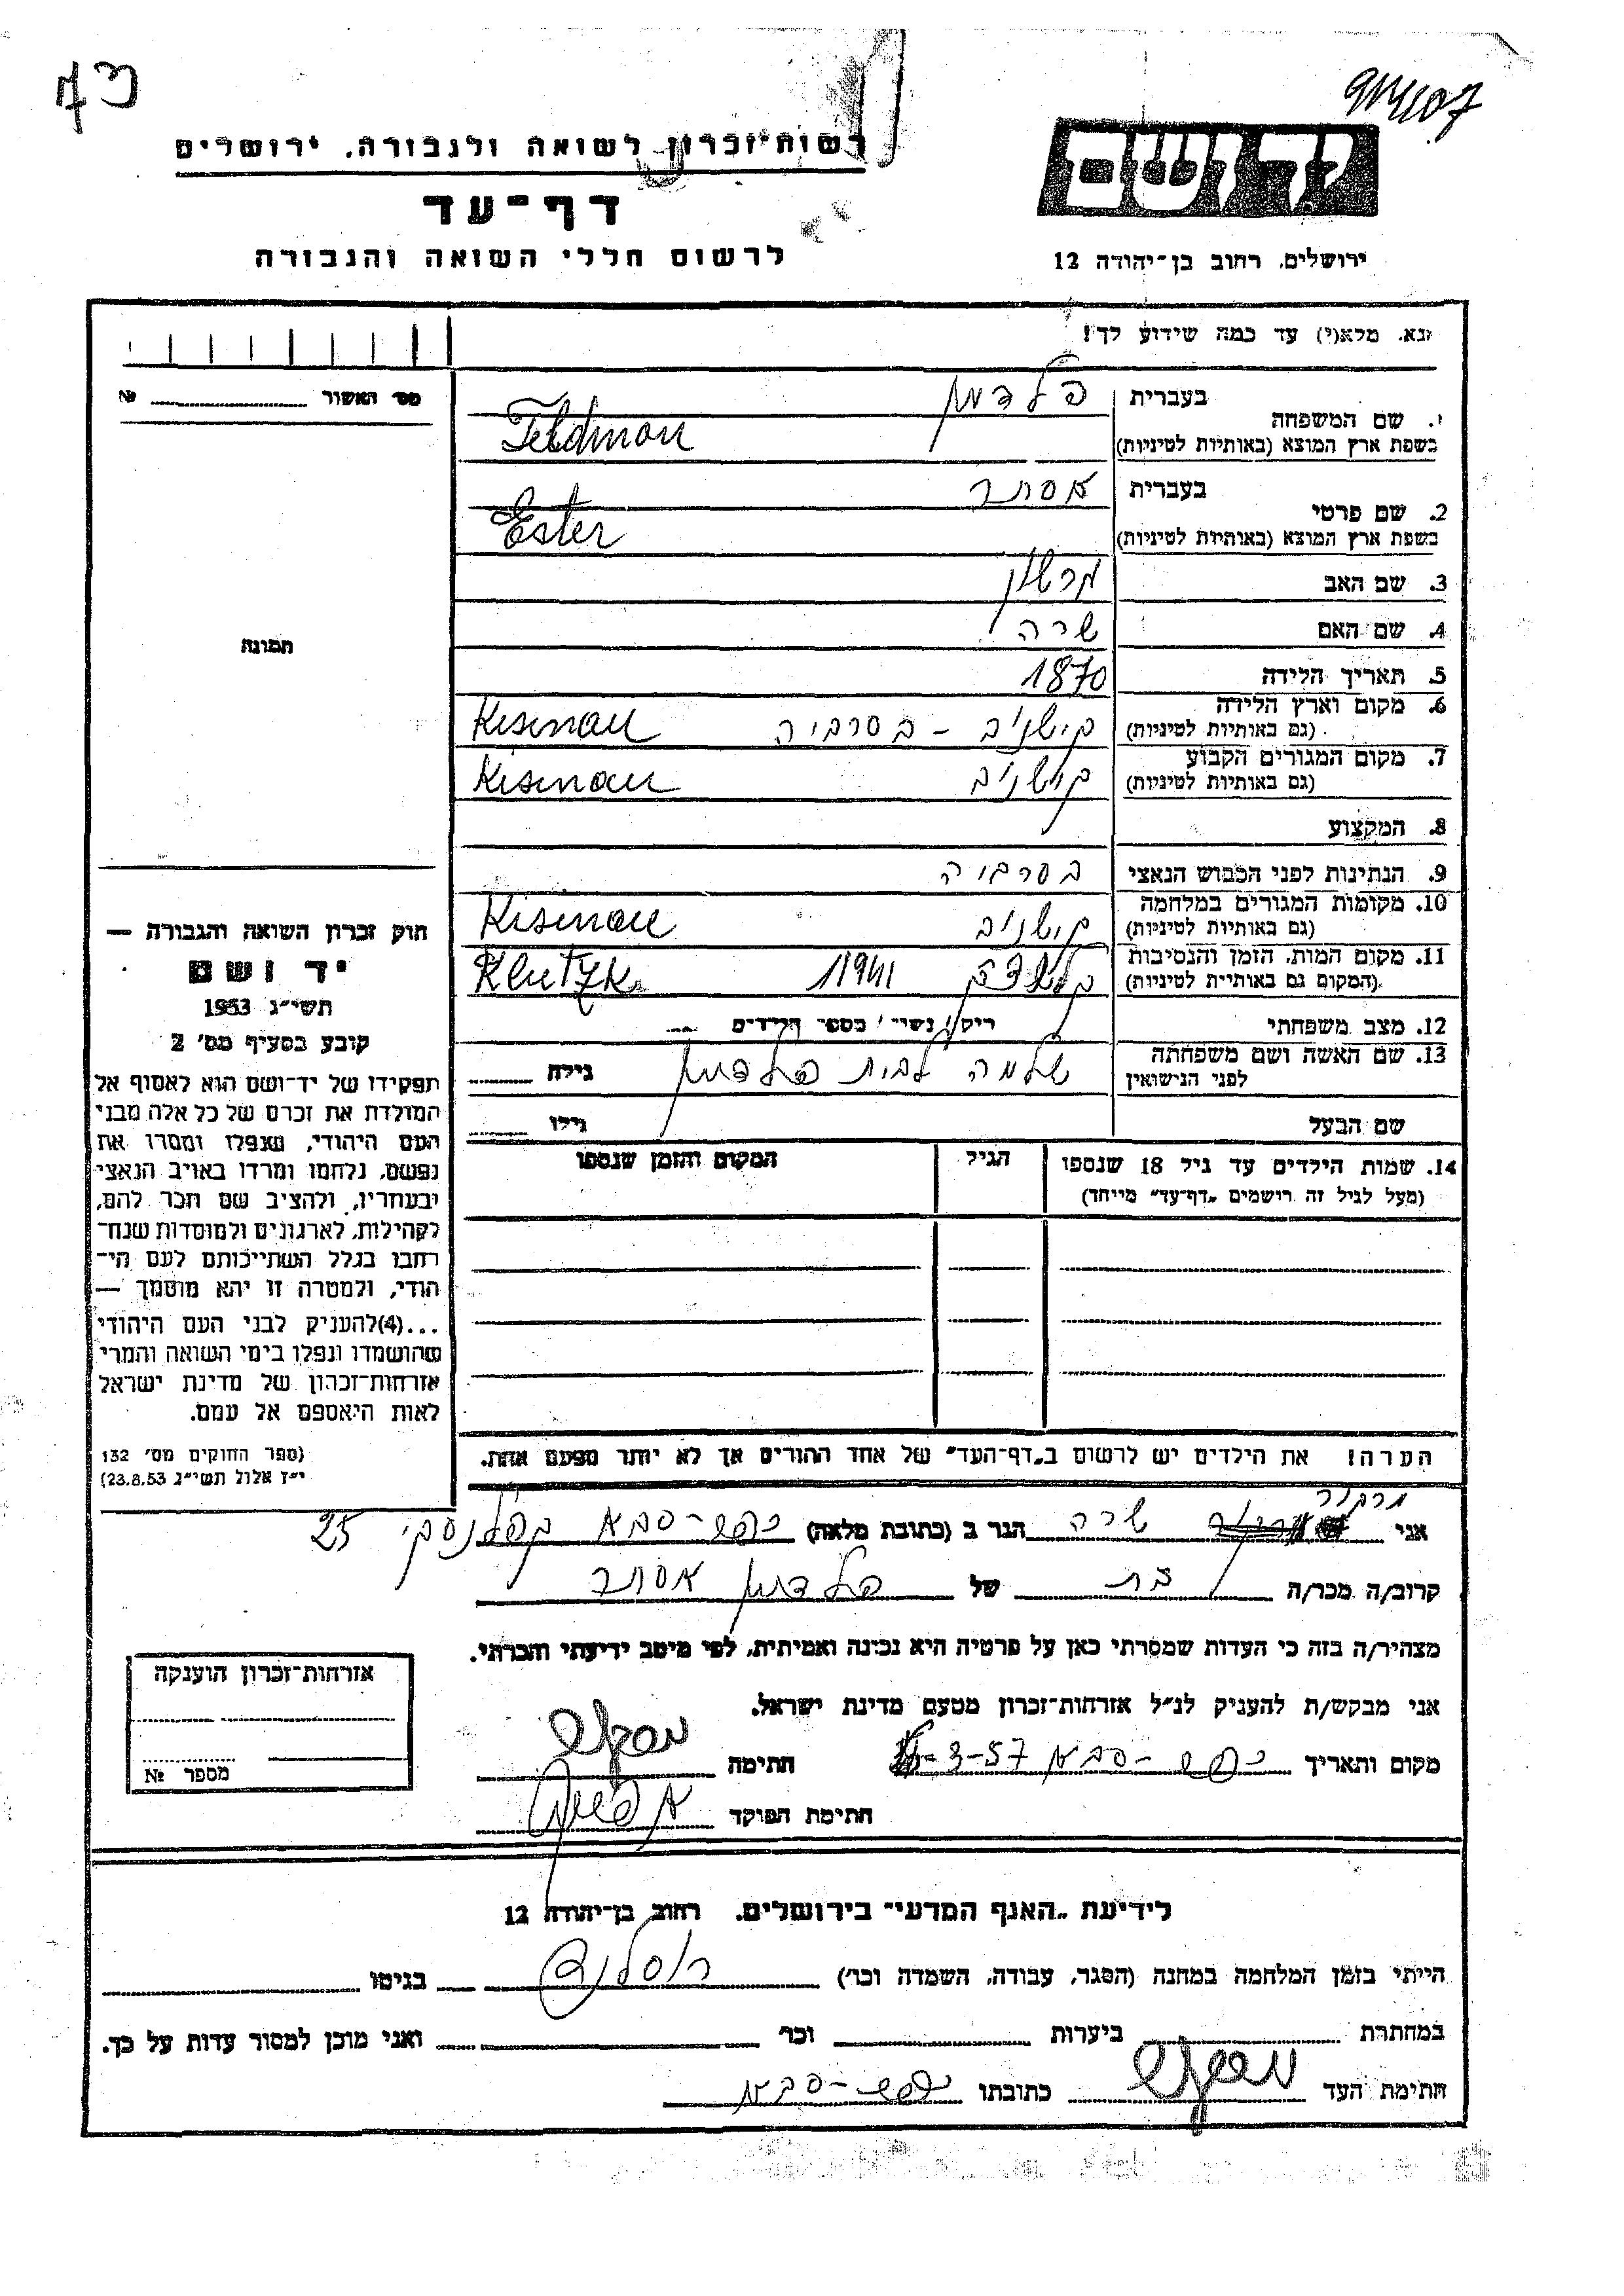 רשות־זכרון לשואה ולגבורה, ירושלים
דף־עד
לרשום חללי השואה והגבורה
ירושלים, רחוב בן־יהודה 12
נא, מלא(י) עד כמה שידוע לך!
מס׳ האשור № 
1. שם המשפחה
בעברית פלדמן
בשפת ארץ המוצא (באותיות לטיניות) Feldman
2. שם פרטי
בעברית אסתר
בשפת ארץ המוצא (באותיות לטיניות) Ester
3. שם האב
4. שם האם שרה
5. תאריך הלידה 1870
6. מקום וארץ הלידה קישנוב - בסרביה Kisenau
(גם באותיות לטיניות)
7. מקום המגורים הקבוע קישנוב Kisenau
(גם באותיות לטיניות)
8. המקצוע
9. הנתינות לפני הכבוש הנאצי בסרביה
10. מקומות המגורים במלחמה קישנוב Kisenau
(גם באותיות לטיניות)
11. מקום המות, הזמן והנסיבות 1941
(המקום גם באותיות לטיניות)
12. מצב משפחתי
13. שם האשה ושם משפחתה שלמה לבית פלדמן גילה
לפני הנישואין
שם הבעל גילו
14. שמות הילדים עד גיל 18 שנספו הגיל המקום והזמן שנספו
(מעל לגיל זה רושמים "דף־עד" מיוחד)
הערה! את הילדים יש לרשום ב"דף־העד" של אחד ההורים אך לא יותר מפעם אחת.
תמונה
חוק זכרון השואה והגבורה —
יד ושם
תשי״ג 1953
קובע בסעיף מס׳ 2
תפקידו של יד־ושם הוא לאסוף אל
המולדת את זכרם של כל אלה מבני
העם היהודי, שנפלו ומסרו את
נפשם, נלחמו ומרדו באויב הנאצי
ובעוזריו, ולהציב שם וזכר להם,
לקהילות, לארגונים ולמוסדות שנח־
רבו בגלל השתייכותם לעם הי־
הודי, ולמטרה זו יהא מוסמך —
...(4)להעניק לבני העם היהודי
שהושמדו ונפלו בימי השואה והמרי
אזרחות־זכרון של מדינת ישראל
לאות היאספם אל עמם.
(ספר החוקים מס׳ 132
י״ז אלול תשי״ג 23.8.53)
אני שרה הגר ב (כתובת מלאה) כפר-סבא 25
קרוב/ה מכר/ה בת של פלדמן אסתר
מצהיר/ה בזה כי העדות שמסרתי כאן על פרטיה היא נכונה ואמיתית, לפי מיטב ידיעתי והכרתי.
אני מבקש/ת להעניק לנ״ל אזרחות־זכרון מטעם מדינת ישראל.
מקום ותאריך כפר-סבא 3-57 חתימה
חתימת הפוקד
אזרחות־זכרון הוענקה
מספר №
לידיעת "האגף המדעי" בירושלים, רחוב בן־יהודה 12
הייתי בזמן המלחמה במחנה (הסגר, עבודה, השמדה וכו׳) רוסלנד בגיטו
במחתרת ביערות וכו׳ ואני מוכן למסור עדות על כך.
חתימת העד כתובתו כפר-סבא